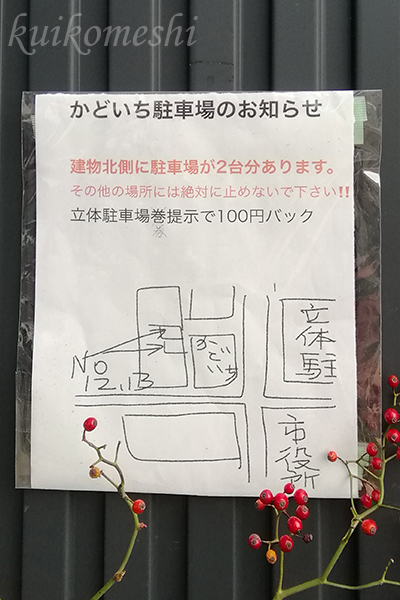 kuikomeshi
かどいち駐車場のお知らせ
建物北側に駐車場が2台分あります。
その他の場所には絶対に止めないで下さい!!
立体駐車場巻提示で100円バック
券
立体駐
かどいち
No
12,13
市役所